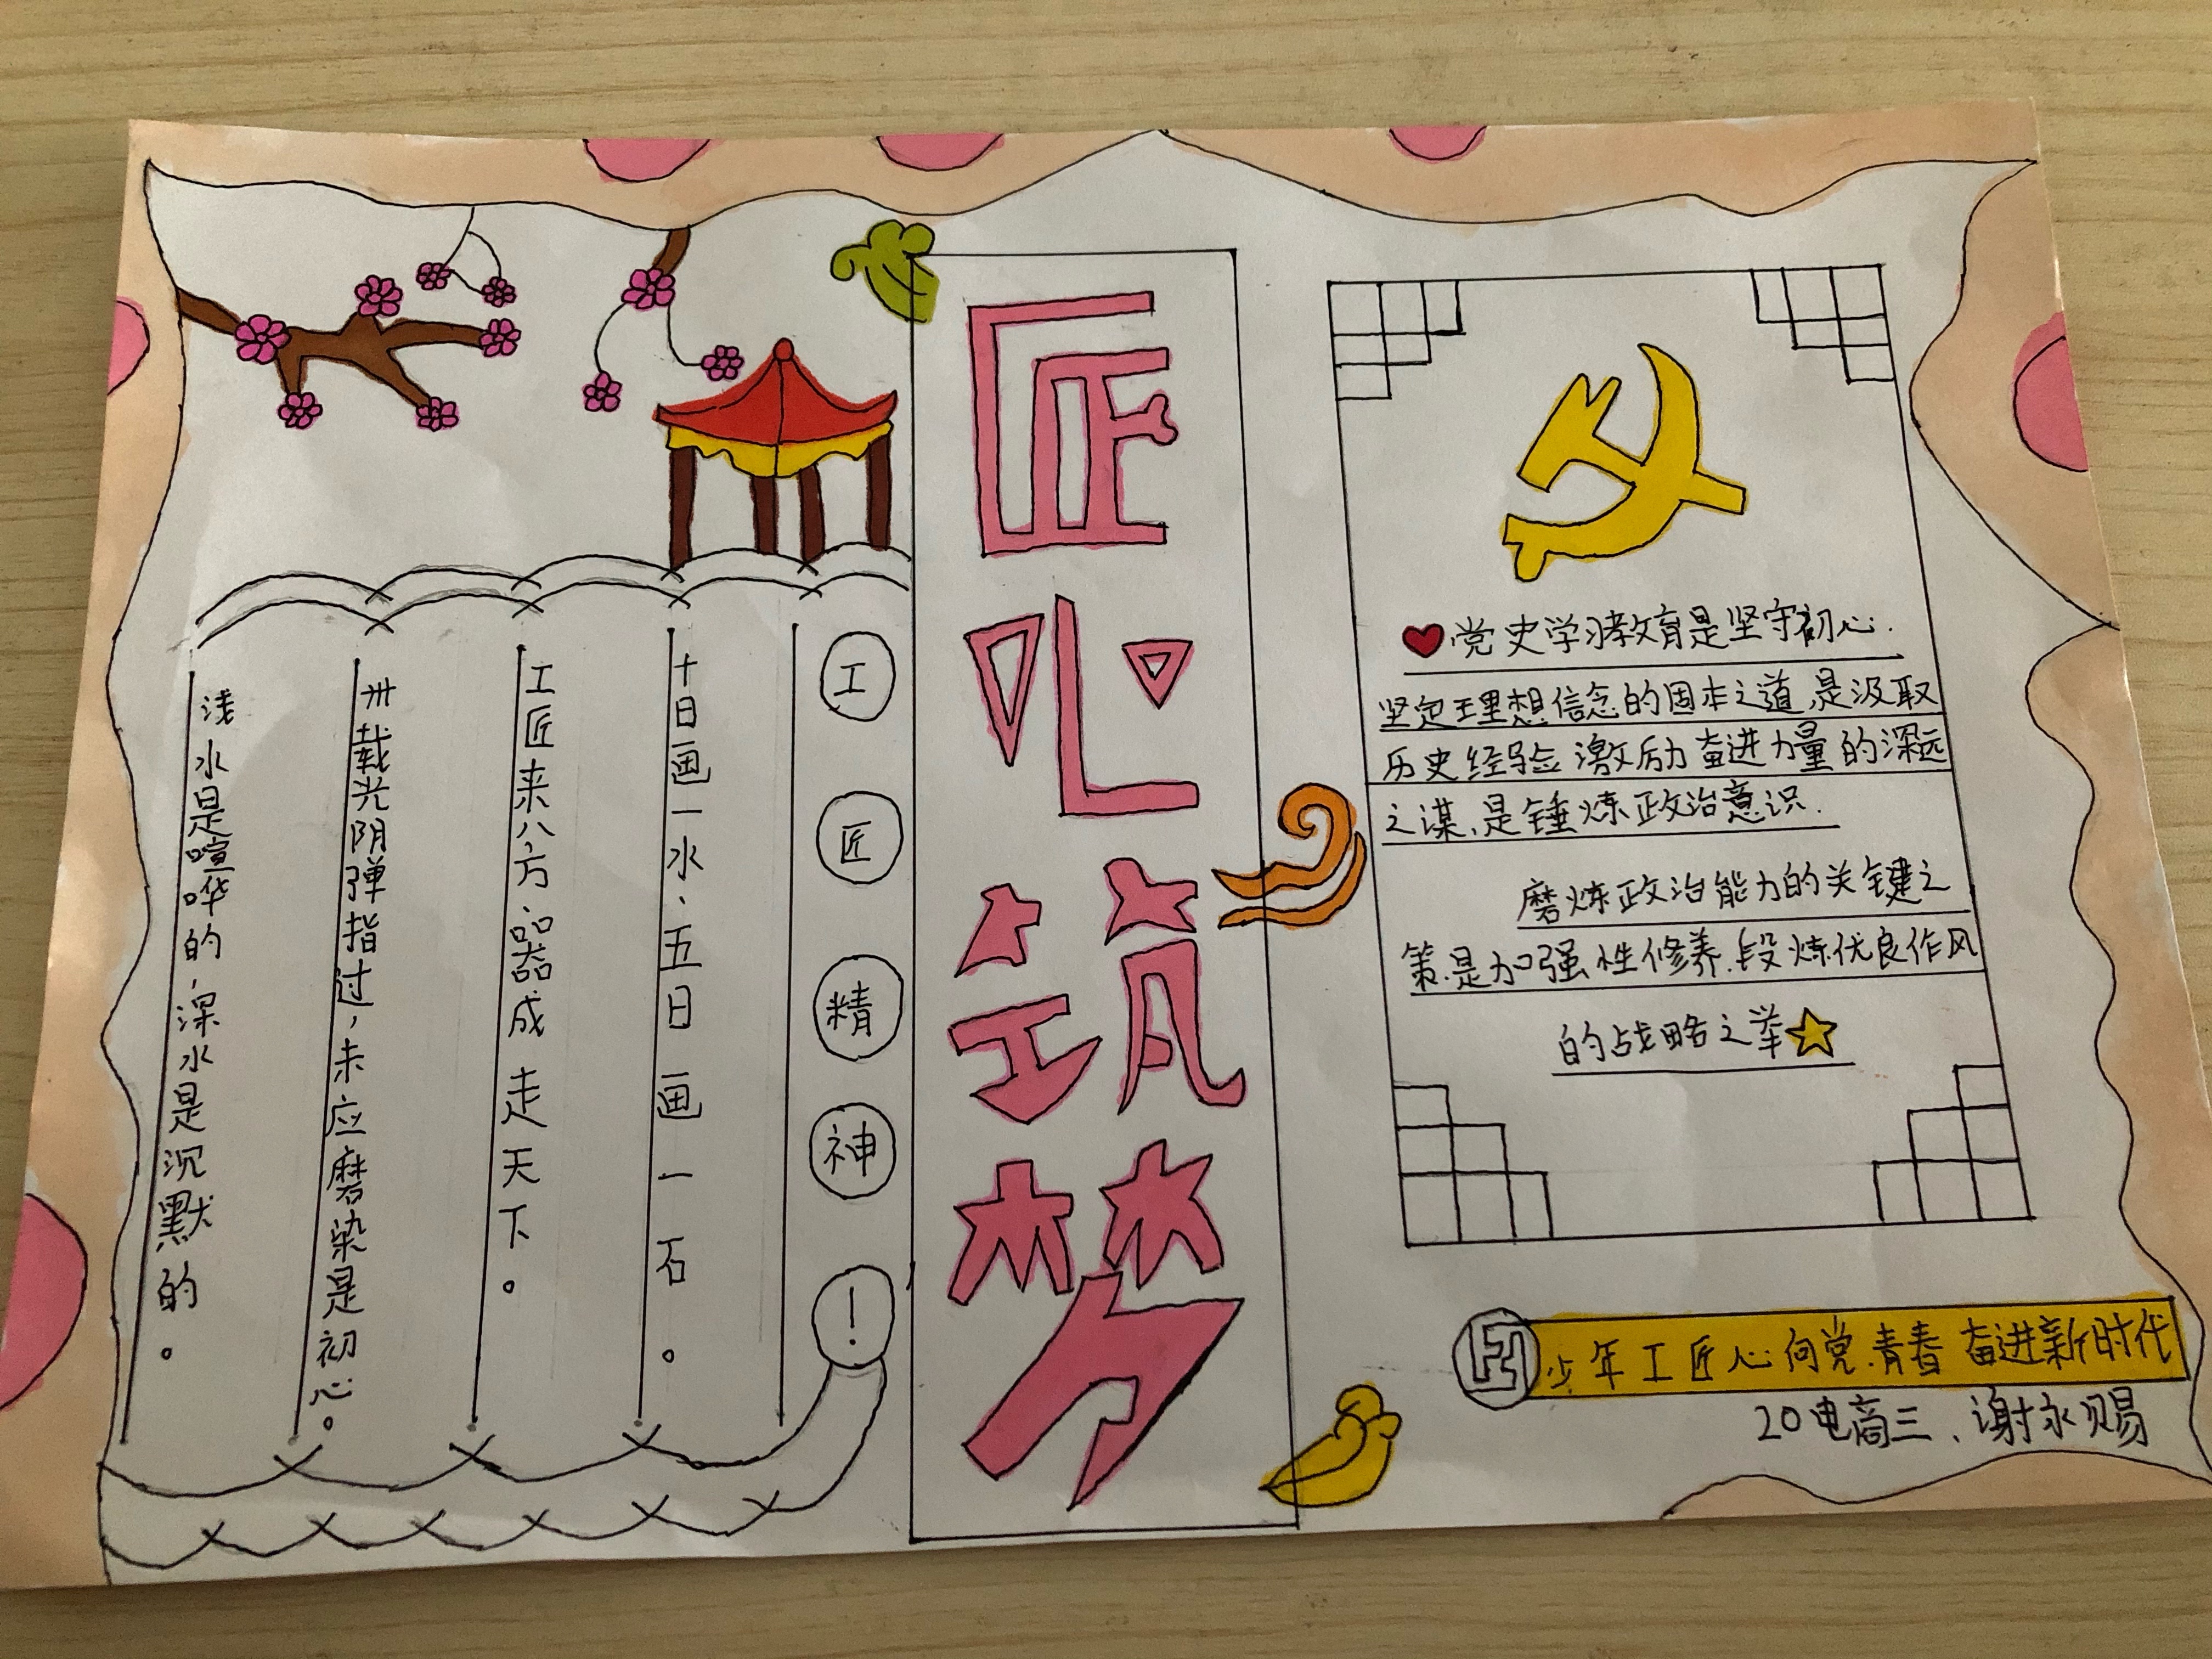 匠心筑梦
工匠精神！
十日画一水.五日画一石。
工匠来八方.器成走天下。
卅载光阴弹指过，未应磨染是初心。
浅水是喧哗的,深水是沉默的。
党史学习教育是坚守初心.
坚定理想信念的固本之道,是汲取
历史经验激励奋进力量的深远
之谋、是锤炼政治意识.
磨炼政治能力的关键之
策.是加强性修养.段炼优良作风
的战略之举
少年工匠心向党.青春奋进新时代
20电商三、谢永赐